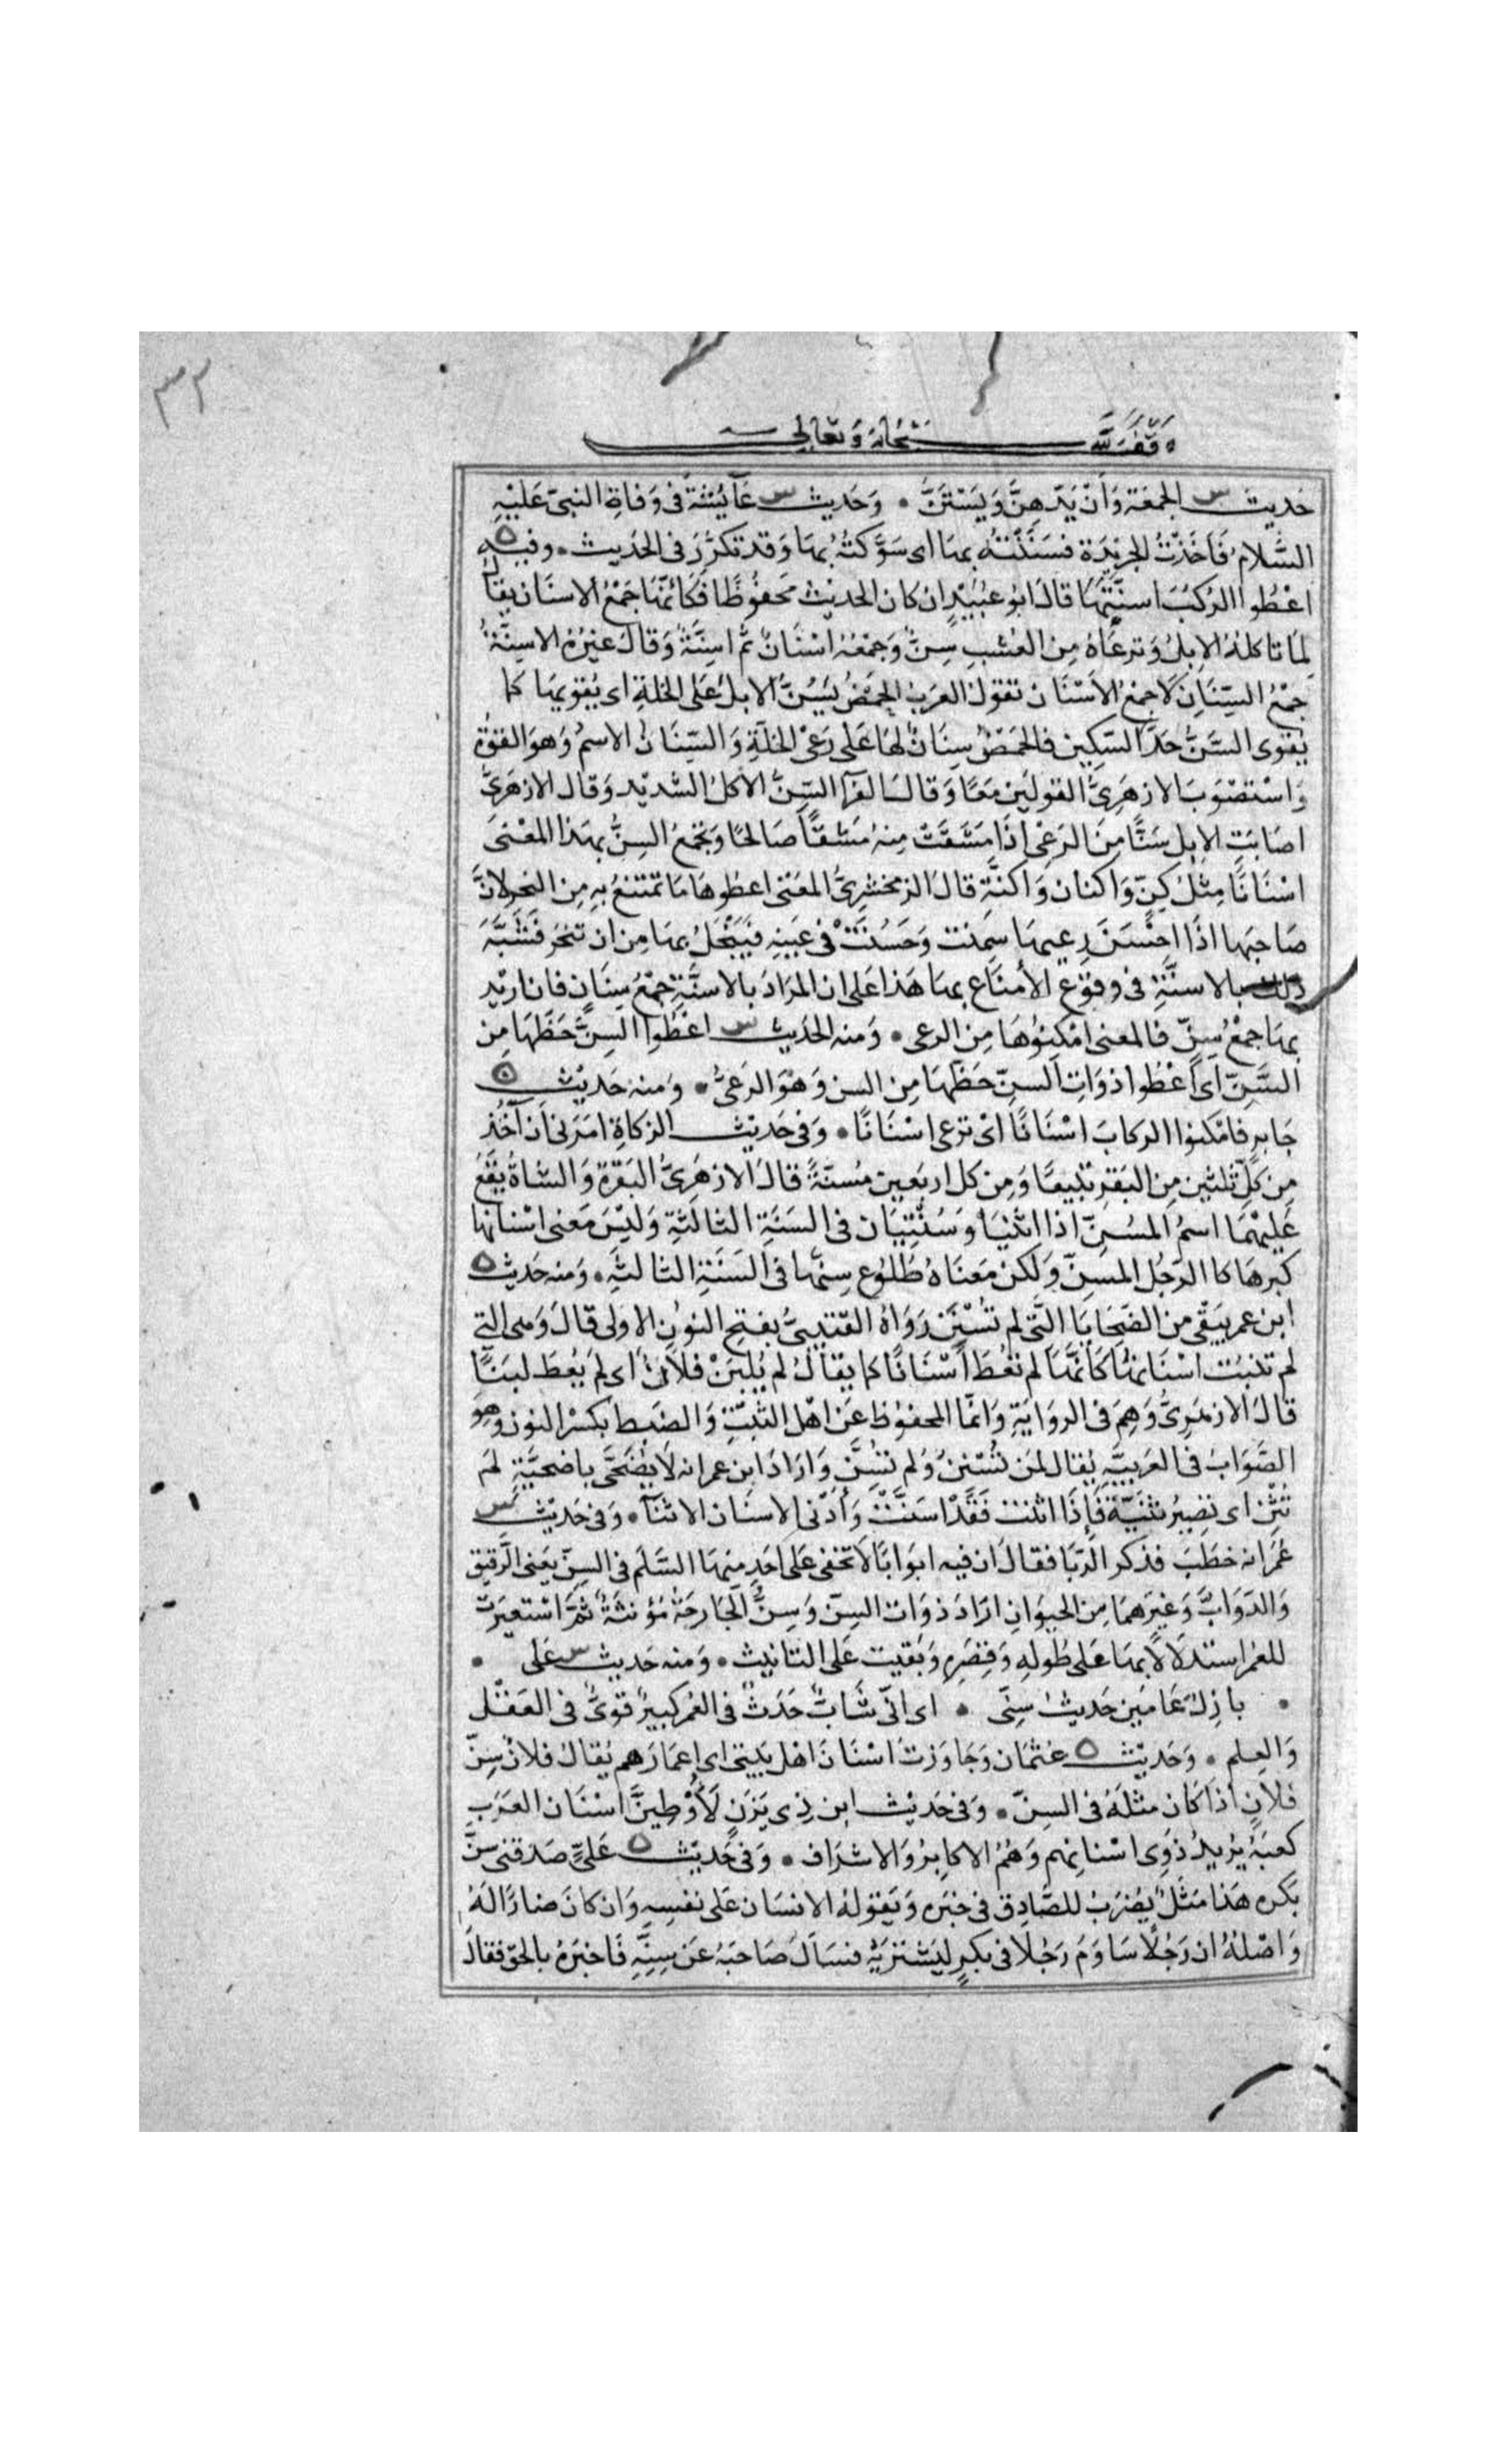 ٣٢
وقف لله سبحانه وتعالى
حديث س الجمعة وَأَنْ يَدّهِنَّ وَيَسْتَنَّ • وَحَديث س عَآئشة فى وَفاةِ النبىّ عَليْهِ
السَّلامُ فَاَخَذْتُ الجَرِيْدَة فسَنَنْتُه بهَا اى سَوَّكتُهُ بهَا وَقد تكرَّرَ فى الحَديث • وفيه ه
اعْطُوا الرُكبَ اسنَّتَهَا قالَ ابُو عبَيْدٍ ان كان الحَديْث مَحفُوظًا فَكَانَّهَا جَمْعُ الاسنَان يقالُ
لِمَا تاكلهُ الابلُ وَترعَاهُ مِن العُشْبِ سِنٌّ وَجمْعُهُ اسْنَانٌ ثمَّ اسِنَّةٌ وَقالَ غيْرُهُ الاسِنَّةُ
جَمْعُ السّنَانِ لاَ جَمْعُ الأسْنَان تقولُ العَرَبُ الحَمْضُ يَسُنُّ الابلَ عَلى الخلةِ اى يُقويهَا كما
يُقوى السَّنُّ حَدَّ السّكين فالحَمضُ سِنَانٌ لهَا عَلى رَعْىِ الخلّةِ وَالسّنَانُ الاسمُ وَهوَ القوّة
وَاسْتصْوَبَ الازهَرِىُّ القولَين مَعًا وَقالَ الفرّا السِّنُّ الاكلُ الشّديْد وَقال الازهَرىُّ
اصَابَتِ الابل سَنًّا مِنَ الرَعْى اذَا مَشَقَتْ مِنهُ مَشقًا صَالحًا وَيجْمَعُ السِنُّ بهَذا المعْنىَ
اسْنَانًا مِثْلُ كِنٍّ وَاكنان وَاكنَّةٍ قالَ الزمخشرِىُّ المعْنى اعطوهَا مَا تمْتنعُ بهِ مِن النحر لانَّ
صَاحِبَها اذَا احْسَنَ رعيهَا سَمِنت وَحَسُنَتْ فى عَينِه فيَبْخَلُ بهَا مِن ان تنحرَ فشَبَّهَ
ذلك بالاسنَّةِ فى وقوع الأمتنَاعِ بهَا هَذا عَلى ان المرَادَ بالاسنَّةِ جمْعُ سِنَانٍ فان اريْد
بهَا جمْعُ سِنّ فالمعنى امْكِنُوهَا مِن الرعى • وَمنه الحَديْث س اعْطُوا السِنَّ حَظّهَا مِن
السَّنِّ اى اَعْطُوا ذوَاتِ السِنّ حَظّهَا مِن السن وَهْوَ الرَعىُ • وَمنه حَديْث ه
جَابرٍ فامْكنوا الركابَ اسْنَانًا اىْ ترعى اسْنَانًا • وَفى حَديْث الزكاةِ امَرَنى اَن آخُذ
مِن كلّ ثلثين مِن البقرِ تبيعًا وَمِن كل اربَعين مُسنّةً قالَ الازهَرِىُّ البَقرَة وَالشاةُ يَقعُ
عَليْهمَا اسمُ المسُنِّ اذا اثنَيَا وَتُثْنِيَان فى السَنَةِ الثالثةِ وَليْسَ مَعنى اسْنانها
كبرهَا كالرَجُل المسنّ وَلكن مَعنَاهُ طُلُوع سِنّها فى السَنَةِ الثالثة • وَمنه حَديْث ه
ابن عمر يَتّقى من الضّحَايَا التّى لم تُسْنَن رَوَاهُ القتيبىُّ بفتح النون الاولى قالَ وَهى التى
لم تنبُت اسْنَانهُا كَانّهَا لم تعْطَ اسْنَانًا كما يقالُ لم يُلْبَنْ فلاَنٌ اى لم يُعطَ لبَنًا
قالَ الازهَرِىُّ وَهِمَ فى الروَايَةِ وَانمَّا المحفوْظ عَن اهْل الثبْتِ وَالضبط بكسْر النون وَهوَ
الصَّوَابُ فى العَربيَّه يُقال لم تُسْنِنْ وَلم تسِنَّ وَارَادَ ابن عمر انه لاَ يُضَحَّى باضحيَّةٍ لم
تُثْنِ اى تصِيرُ ثنيَّةً فَاِذَا اثنت فَقَدْ اسَنَّتْ وَأدْنى الاسنَان الاثنآ • وَفى حَديْث س
عُمَرَ انه خطَبَ فذكر الرّبَا فقالَ ان فيه ابوَابًا لاَ تخفى عَلى اَحَدٍ منهَا السَّلَم فى السِنّ يَعنى الرَّقيق
وَالدّوَابَّ وَغيَرهمَا مِن الحيوَانِ ارَادَ ذوَات السِنّ وَسِنُّ الجَارحَة مُؤنثَةٌ ثمَّ اسْتعيَرت
للعُمر استدلاَلاً بهَا عَلى طُولهِ وَقِصَرِهِ وَبَقيَت عَلى التانيث • وَمنه حَديث س عَلى •
• بازِلُ عَامَين حَديثٌ سِنّى • اى انّى شابٌّ حَدَثٌ فى العُمر كبيرٌ قوىٌّ فى العَقْل
وَالعِلم • وَحَديْث ه عثْمَان وَجَاوَزتُ اسْنَانَ اهْل بَيتى اى اعمَارَهم يُقالُ فلانٌ سِنّ
فلانٍ اذا كان مثلَهُ فى السِنّ • وَفى حَديْث ابن ذِى يَزَن لَأُوْطِئَنَّ اسْنَان العَرَبِ
كعبَهُ يُريدُ ذوِى اسْنانهم وَهُمُ الاكابرُ وَالاشرَاف • وَفى حَديْث ه عَلىٍّ صَدقنى سِنَّ
بَكره هَذا مَثلٌ يُضرَبُ للصَّادِق فى خبَره وَيَقولهُ الانسَان عَلى نفسِهِ وَان كانَ ضارًا لَهُ
وَاصْلهُ ان رَجُلاً سَاوَمَ رَجُلاً فى بكرٍ ليَشتريَهُ فسَالَ صَاحبَهُ عَن سِنِّهِ فَاخبَرهُ بالحَقّ فقالَ